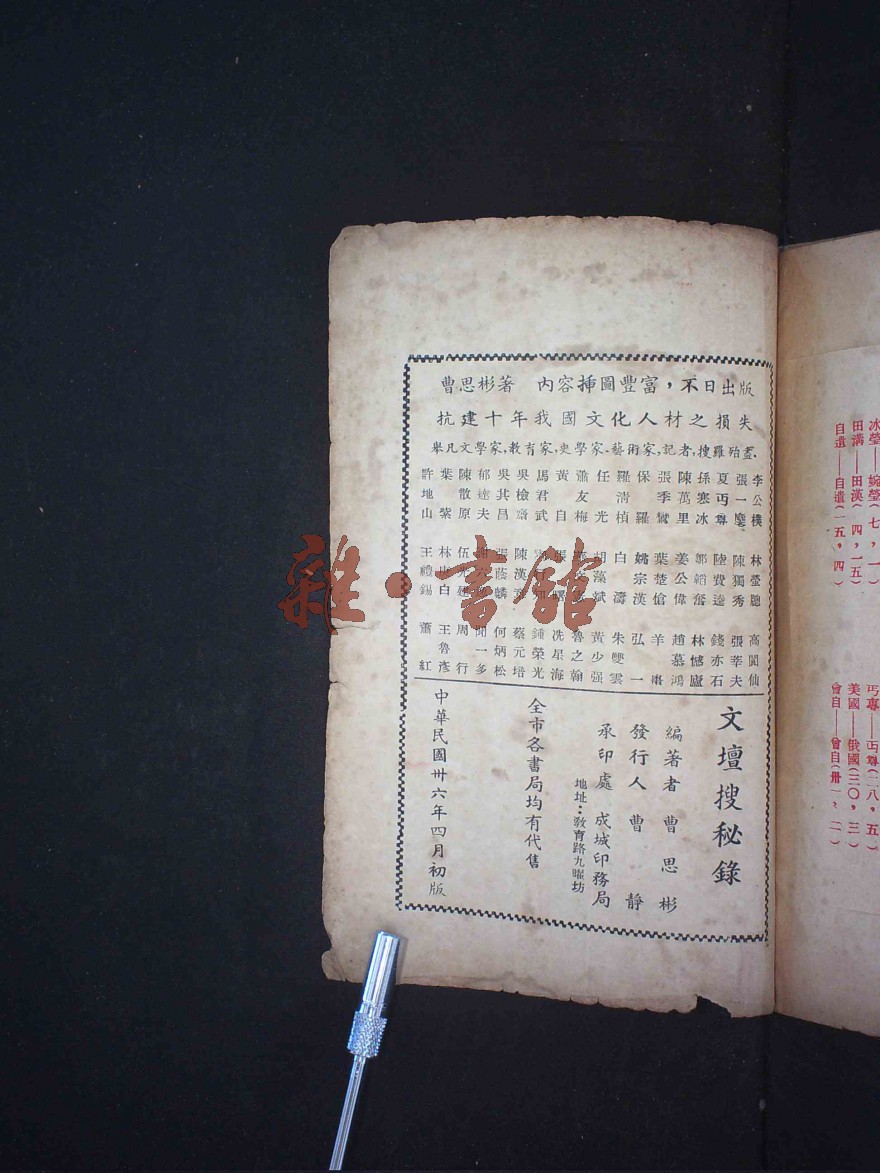 曹思彬著 內容揷圖豐富，不日出版
抗建十年我國文化人材之損失
舉凡文學家，教育家，史學家，藝術家，記者，搜羅殆盡．
李公樸 林瑩聰 高闐仙
張一麐 陳獨秀 張莘夫
夏丏尊 陸費逵 錢亦石
孫寒冰 鄒韜奮 林憾廬
陳萬里 姜公偉 趙慕鴻
張季鸞 葉楚傖 羊棗
保羅 姚宗漢 弘一
羅清楨 白濤 朱雙雲
任光 胡藻斌 黃少强
蕭友梅 魯之翰
黃自 張曙 冼星海
馬君武 鍾榮光
吳檢齋 陳漢章 蔡元培
吳其昌 張蔭麟 何炳松
郁達夫 聞一多
陳散原 伍光建 周行
葉紫 林庚白 王魯彥
許地山 王禮錫 蕭紅
文壇搜秘錄
編著者 曹思彬
發行人 曹靜
承印處 成城印務局
地址：敎育路九曜坊
全市各書局均有代售
中華民國卅六年四月初版
冰瑩——婉瑩（七，一）
田溝——田漢（四，一五）
自遺——自遣（一五，四）
丐專——丏尊（二八，五）
美國——俄國（三〇，三）
會自——曾自（卅一，二）
雜·書館